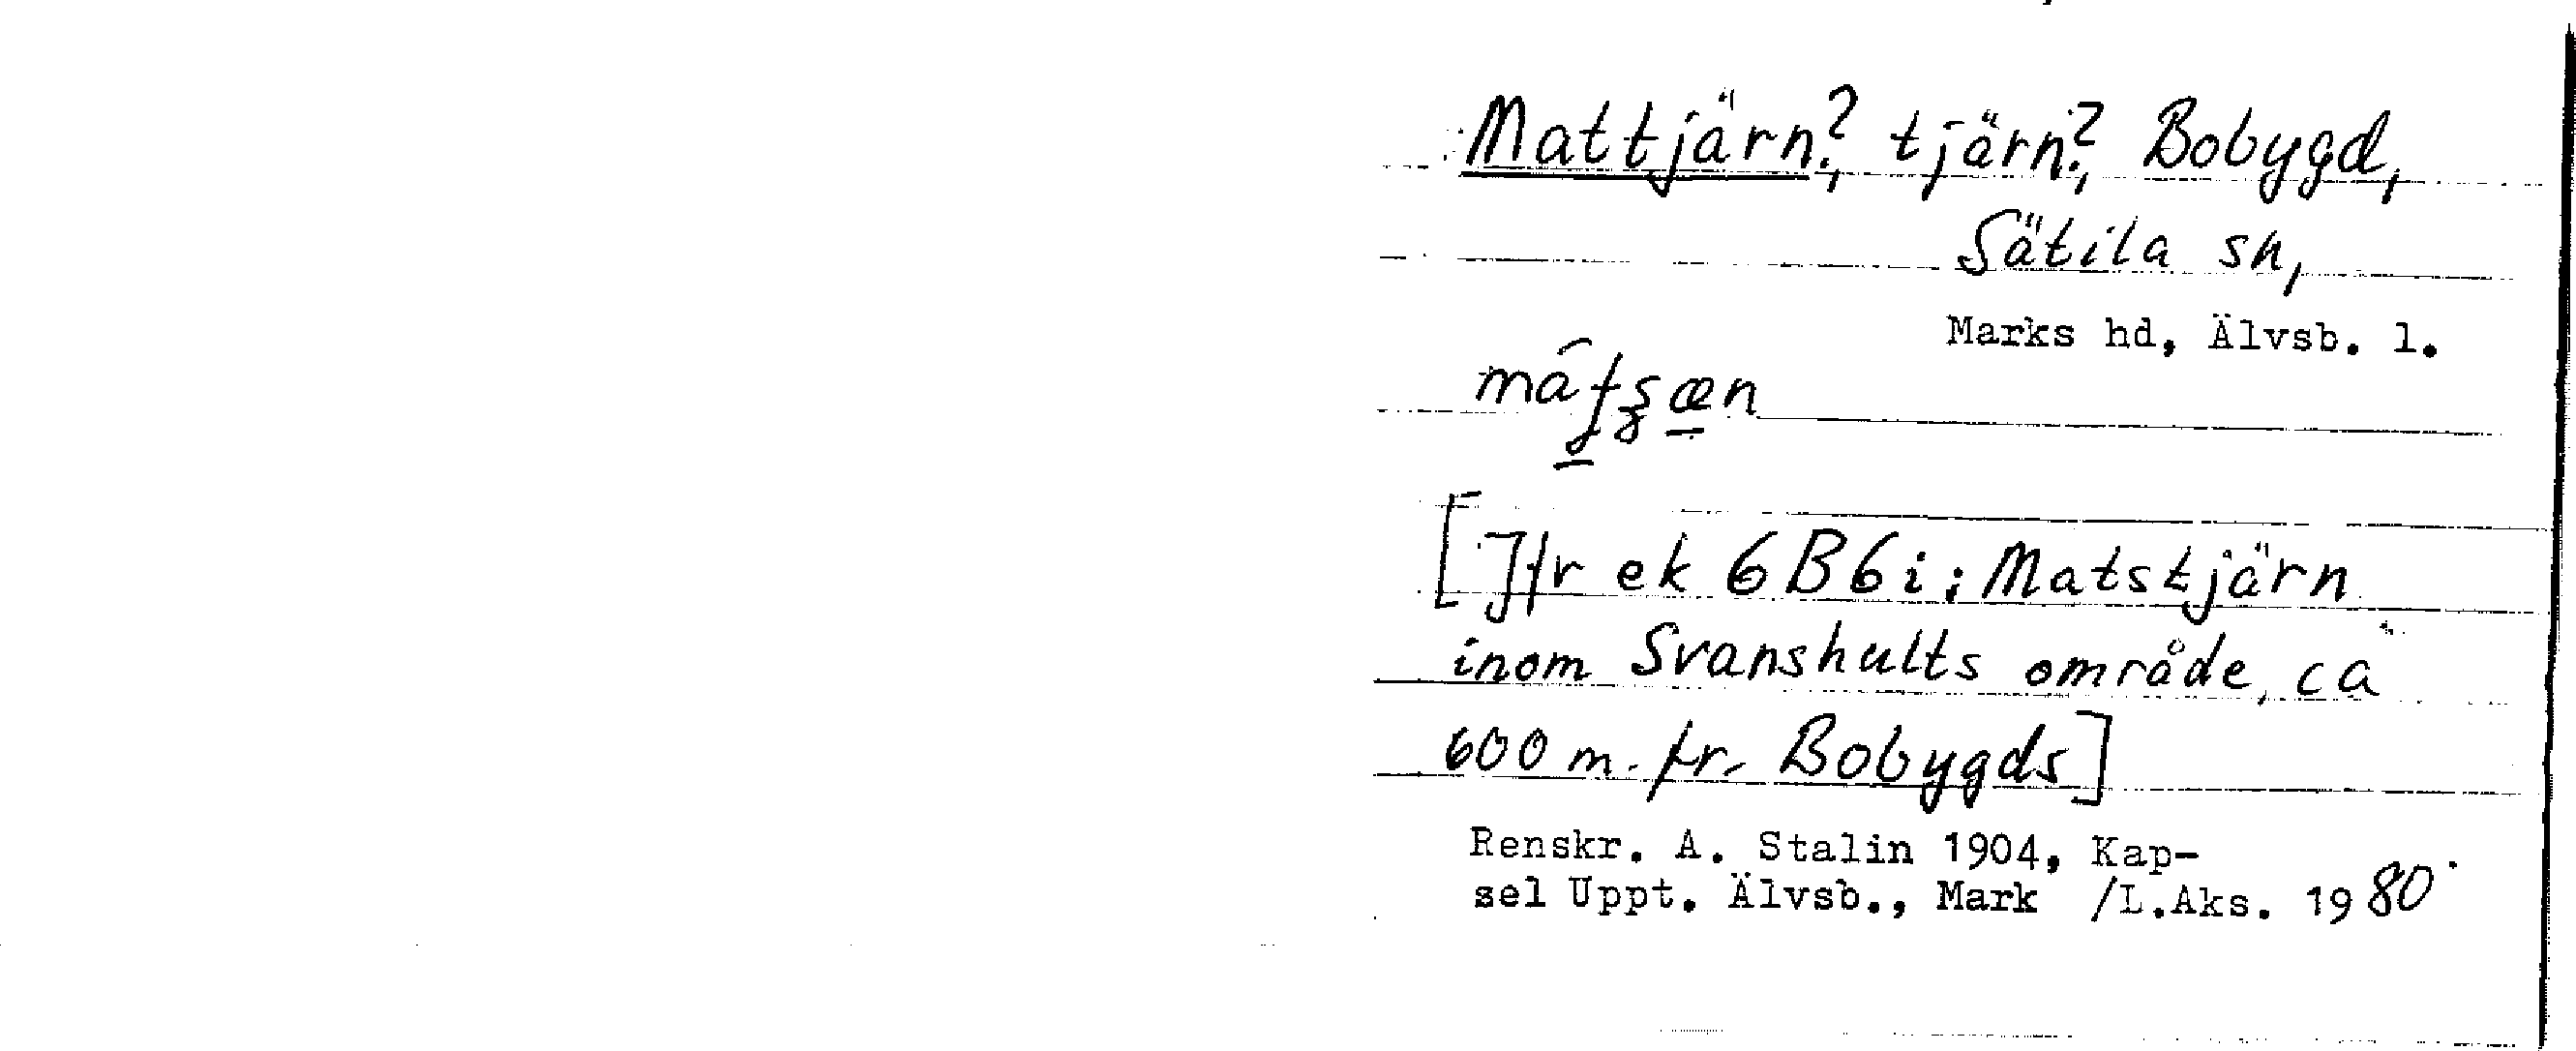 Mattjärn?, tjärn?, Bobygd,
Sätila sn,
Marks hd, Älvsb. l.
[Jfr ek 6B6i: Matstjärn
inom Svanshults område, ca
600 m. fr. Bobygds]
Renskr. A. Stalin 1904, Kap-
sel Uppt. Älvsb., Mark /L.Aks. 1980